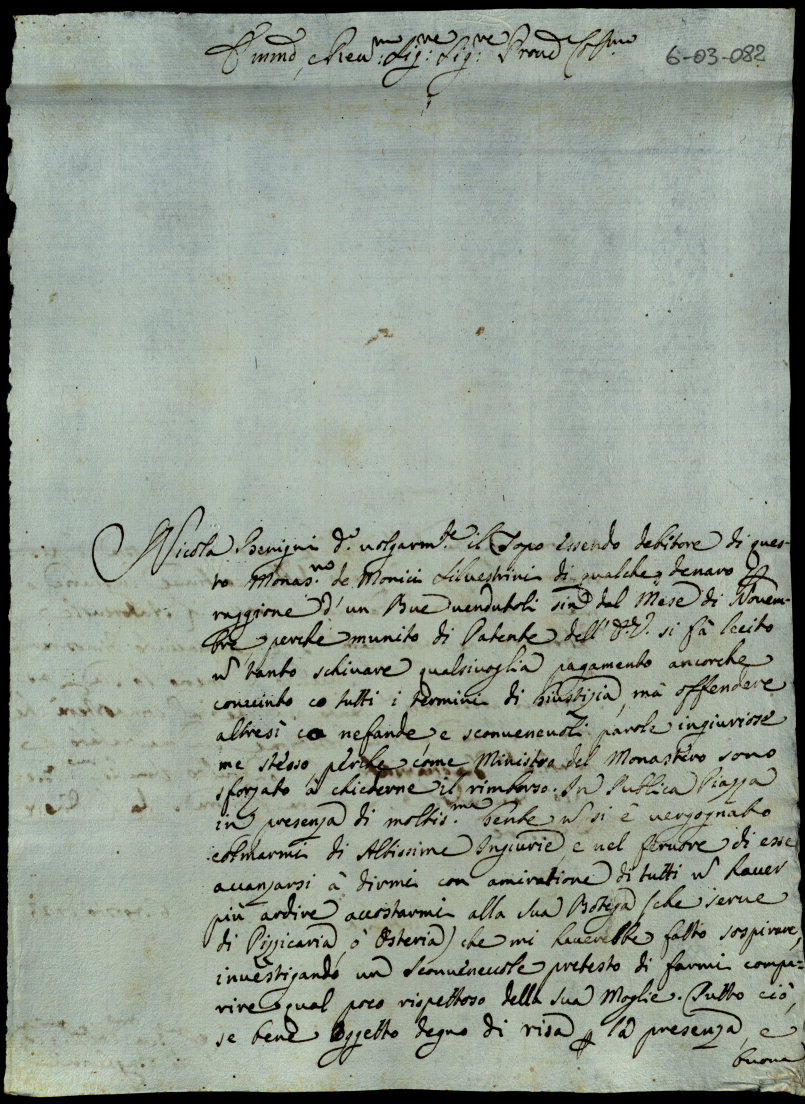 Ill.mo e Rev.mo Sig.re Sig.re Prone Col.mo
6-03-082
Nicola Benigni d.o volgarm.te il Sopo essendo debitore di ques-
to Monas.ro de Monici Silvestrini di qualche denaro p
raggione d'un Bue vendutoli sin dal Mese di Novem-
bre perche munito di Patente dell' si fà lecito
nō tanto schivare qualsivoglia pagamento ancorche
convinto cō tutti i termini di giustizia, mà offendere
altresì cō nefande e sconvenevoli parole ingiuriose
me stesso perche come Ministro del Monastero sono
sforzato à chiederne il rimborso. In Publica Piazza
in presenza di moltis.ma Gente nō si è vergognato
colmarmi di Altissime Ingiurie, e nel fervore di esse
avanzarsi à dirmi con amiratione di tutti nō haver
più ardire accostarmi alla sua Botega (che serve
di Pizzicaria, ò Osteria) che mi haverebbe fatto sospirare,
investigando un sconvenevole pretesto di farmi compa=
rire qual poco rispettoso della sua Moglie. Tutto ciò,
se bene oggetto degno di risa p la presenza, e
buona